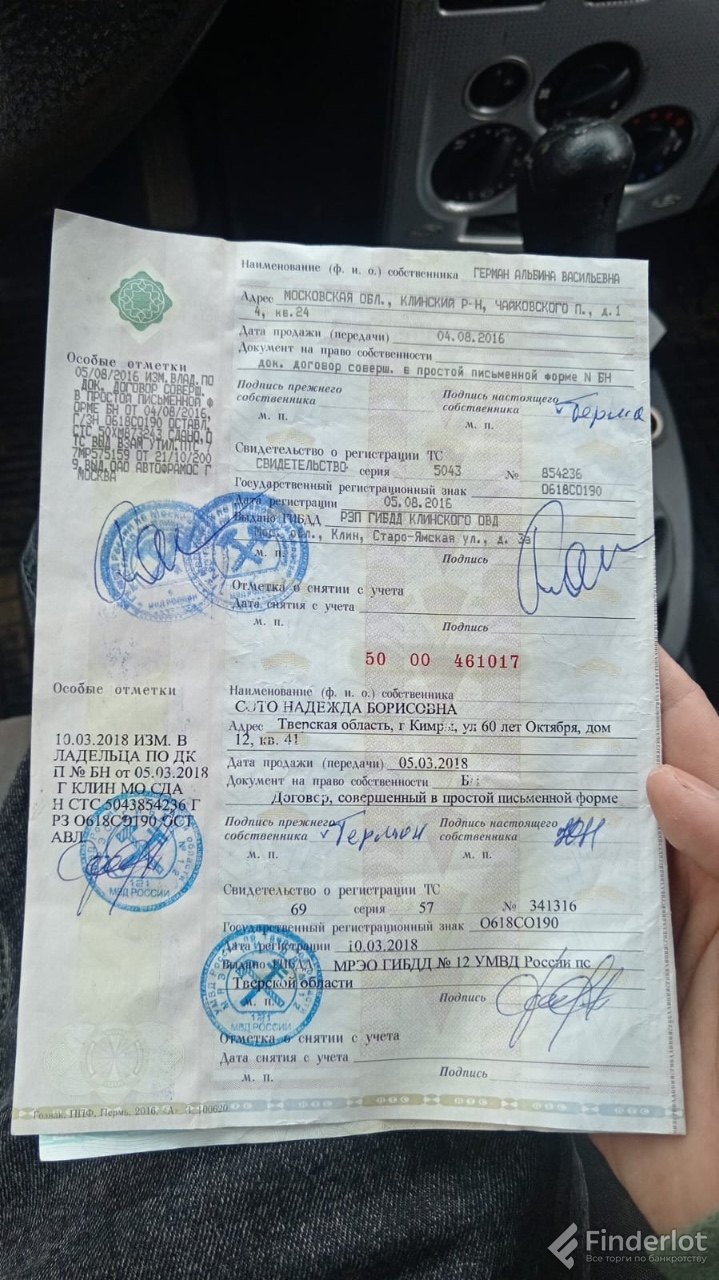 Наименование (ф. и. о.) собственника ГЕРМАН АЛЬБИНА ВАСИЛЬЕВНА
Адрес МОСКОВСКАЯ ОБЛ., КЛИНСКИЙ Р-Н, ЧАЙКОВСКОГО П., д.1
4, кв.24
Дата продажи (передачи) 04.08.2016
Документ на право собственности
док. договор соверш. в простой письменной форме N БН
Подпись прежнего собственника
Подпись настоящего собственника
м. п.
м. п.
Особые отметки
05/08/2016 ИЗМ.ВЛАД.ПО
ДОК. ДОГОВОР СОВЕРШ.
В ПРОСТОЙ ПИСЬМЕННОЙ Ф
ОРМЕ БН ОТ 04/08/2016,
Г/ЗН О618СО190 ОСТАВЛ,
СДАНО,П
ТС ВЫД ВЗАМ УТИЛ.ПТС7
7МР575159 ОТ 21/10/200
9,ВЫД.ОАО АВТОФРАМОС Г
МОСКВА
Свидетельство о регистрации ТС
СВИДЕТЕЛЬСТВО серия 5043 № 854236
Государственный регистрационный знак О618СО190
Дата регистрации 05.08.2016
Выдано ГИБДД РЭП ГИБДД КЛИНСКОГО ОВД
Мос. обл., Клин, Старо-Ямская ул., д. 3а
м. п. Подпись
Отметка о снятии с учета
Дата снятия с учета
м. п. Подпись
50 00 461017
Особые отметки
10.03.2018 ИЗМ. В
ЛАДЕЛЬЦА ПО ДК
П № БН от 05.03.2018
Г КЛИН МО СДА
Н СТС 5043854236 Г
РЗ О618СО190 ОСТ
АВЛ
Наименование (ф. и. о.) собственника
СОТО НАДЕЖДА БОРИСОВНА
Адрес Тверская область, г Кимры, ул 60 лет Октября, дом
12, кв. 41
Дата продажи (передачи) 05.03.2018
Документ на право собственности
Договор, совершенный в простой письменной форме
Подпись прежнего собственника Герман
Подпись настоящего собственника
м. п.
м. п.
Свидетельство о регистрации ТС
69 серия 57 № 341316
Государственный регистрационный знак О618СО190
Дата регистрации 10.03.2018
Выдано ГИБДД МРЭО ГИБДД № 12 УМВД России по
Тверской области
м. п. Подпись
МВД РОССИИ
Отметка о снятии с учета
Дата снятия с учета
м. п. Подпись
Гознак, ППФ, Пермь, 2016, «А»
Finderlot
Все торги по банкротству